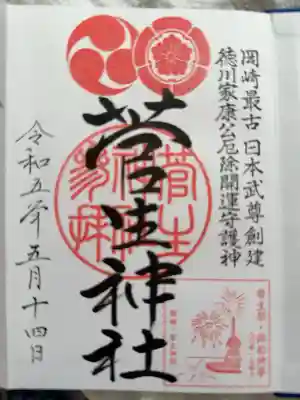 岡崎最古 日本武尊創建
徳川家康公厄除開運守護神
菅生神社
令和五年五月十四日